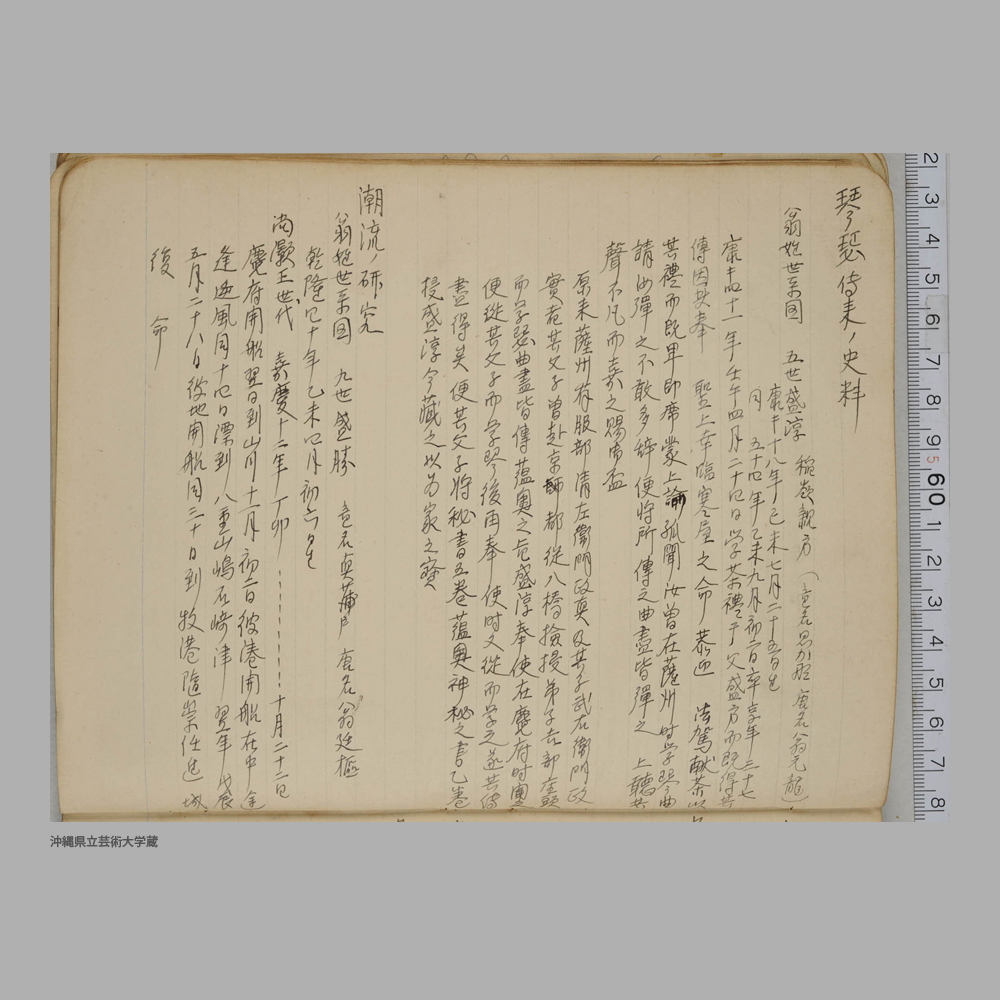 琴瑟伝来ノ史料
翁姓世系図 五世盛淳 稲嶺親方(童名思加那 唐名翁元龍)
康キ十八年己未七月二十五日生
同 五十四年乙未九月初二日卒享年三十七
康キ四十一年壬午四月二十四日学茶禮于父盛方而既得其
傳因其奉 聖上幸臨寒屋之命恭迎 法駕献茶以
其禮而既畢即席蒙上諭孤聞汝曾在薩州時学琴曲
請汝弾之不敢多辞便將所傳之曲盡皆弾之 上聴其
聲不凡而嘉之賜南盃
原来薩州有服部清左衛門政真及其子武右衛門政
實者其父子曾赴京師都從八橋撿挍弟子吉部座頭
而学琴曲盡皆傳蘊奥之旨盛淳奉使在麑府時
便從其父子而学琴後再奉使時又從而学之遂其傳
盡得矣便其父子將秘書五巻蘊奥神秘之書乙巻
授盛淳今藏之以為家之寳
潮流ノ研究
翁姓世系図 九世盛勝 童名真蒲戸 唐名翁廷樞
乾隆四十年乙未四月初六日生
尚灝王世代 嘉慶十二年丁卯 ………… 十月二十二日
麑府開船翌日到山川十一月初二日彼港開船在中途
逢逆風同十四日漂到八重山嶋石崎津 翌年戊辰
五月二十八日彼地開船同三十日到牧港随崇任進城
復 命
2 3 4 5 6 7 8 9 60 1 2 3 4 5 6 7 8
沖縄県立芸術大学蔵